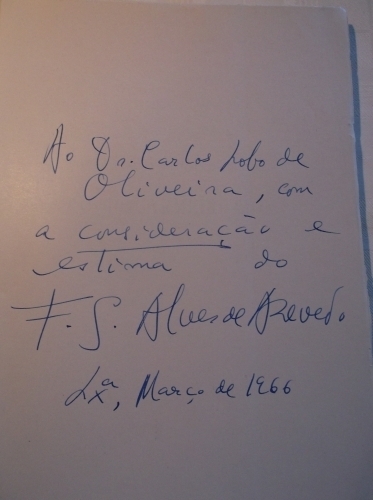 Ao Dr. Carlos Lobo de
Oliveira, com
a consideração e
estima do
F. S. Alves de Azevedo
Lxª, Março de 1966